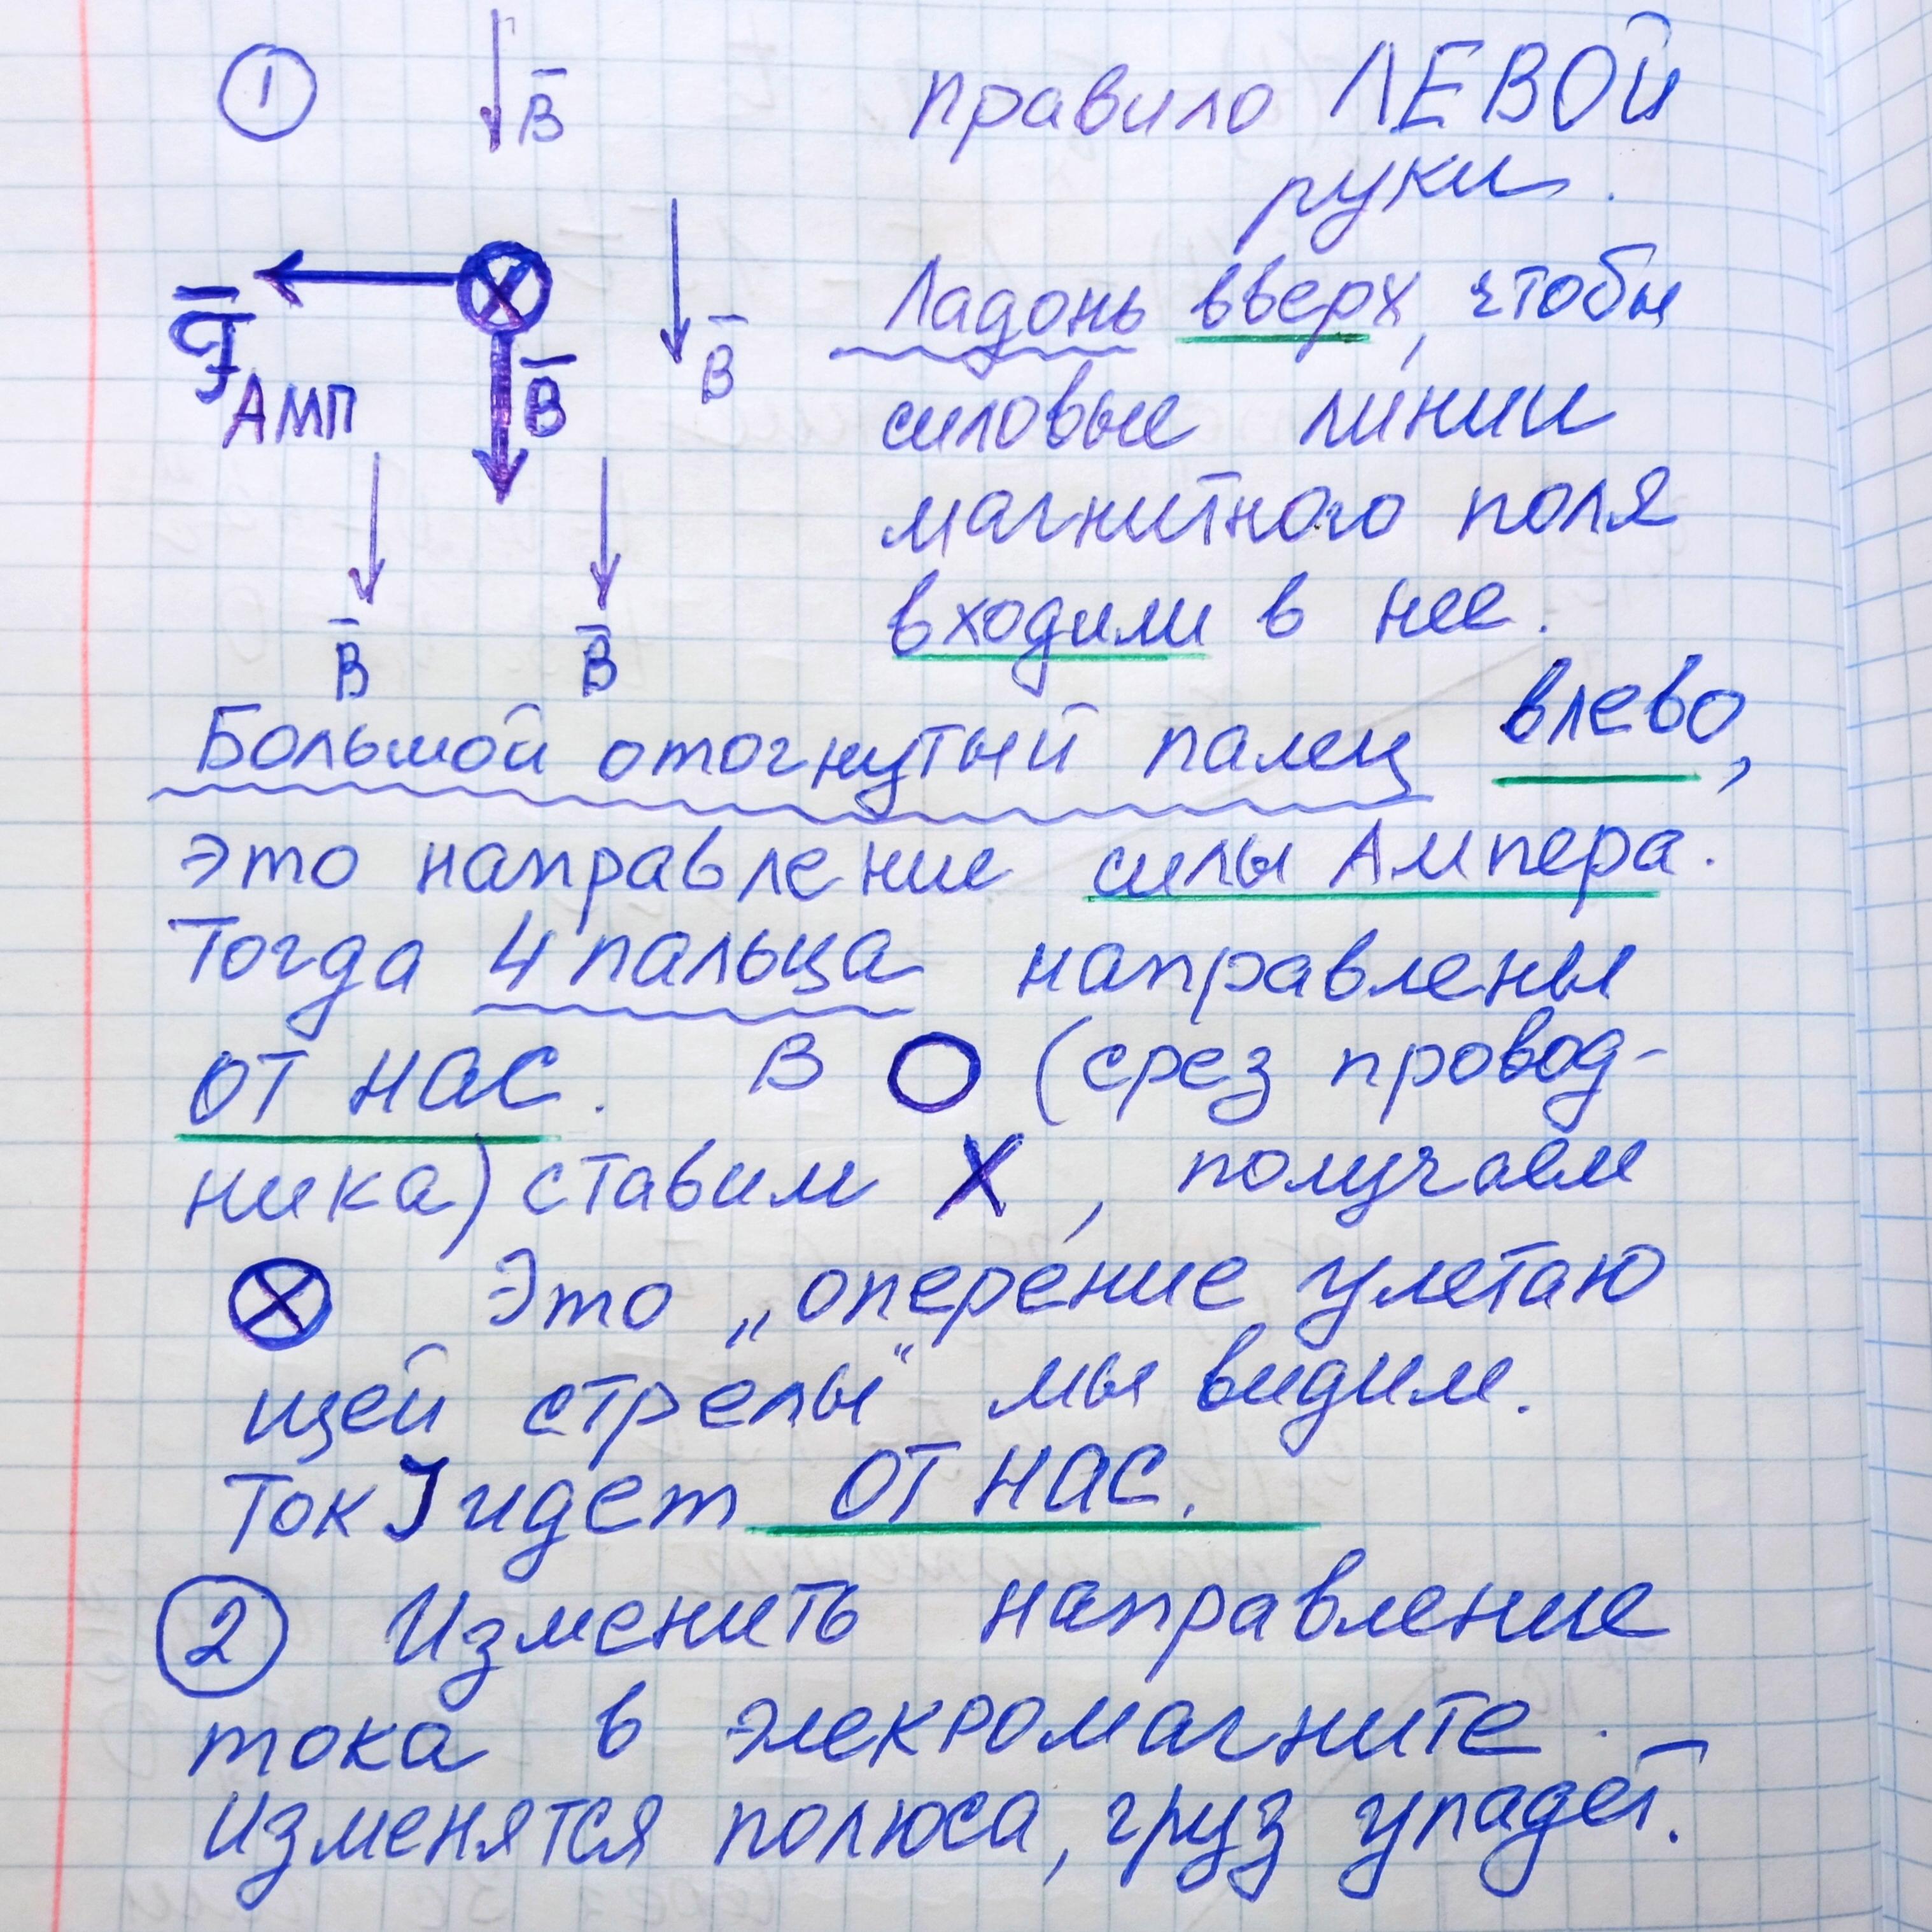 1
B̅
правило ЛЕВОЙ
руки.
Ладонь вверх, чтобы
B̅
F̅ АМП
B̅
силовые линии
магнитного поля
входили в нее.
B̅ B̅
Большой отогнутый палец влево,
это направление силы Ампера.
Тогда 4 пальца направлены
от нас. В О (срез провод-
ника) ставим X, получаем
⊗ Это „оперение улетаю
щей стрелы“ мы видим.
Ток I идет от нас.
2 Изменить направление
тока в элекромагните.
Изменятся полюса, груз упадет.